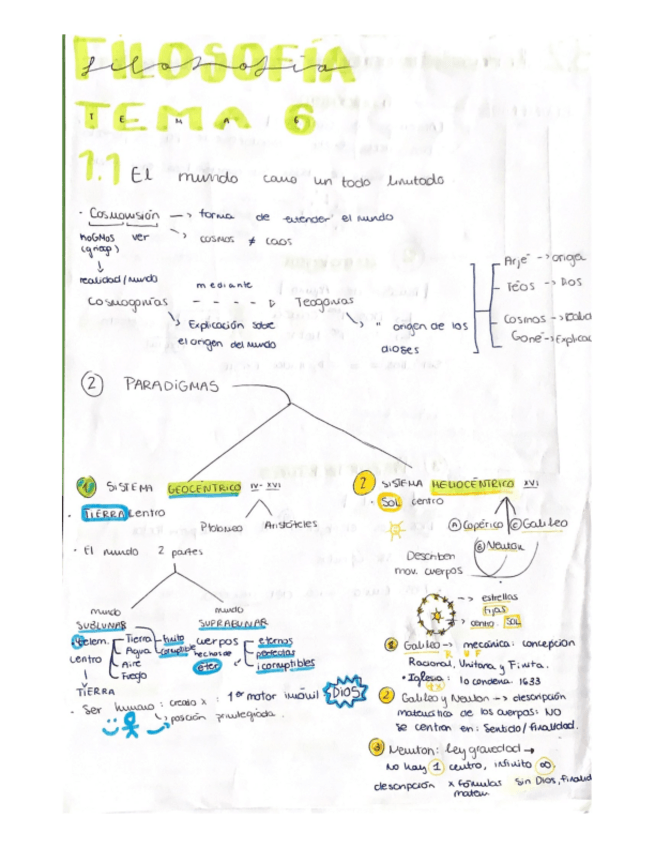 FILOSOFÍA
filosofía
TEMA 6
TEMA 6
1.1 El mundo como un todo limitado
· Cosmovisión —> forma de entender el mundo
↘ COSMOS ≠ CAOS
ver
realidad/mundo
mediante
Cosmogonías - - - - ▷ Teogonías
↘ Explicación sobre el origen del mundo
↘ " origen de los dioses
Arjé —> origen
Teos —> Dios
Cosmos —>
Gone —> Explicac
② PARADIGMAS
1 SISTEMA GEOCÉNTRICO IV - XVI
· TIERRA centro
Ptolomeo Aristóteles
· El mundo 2 partes
mundo SUBLUNAR
4 elem.
Tierra
Agua
Aire
Fuego
finito
corruptible
centro
↓
TIERRA
mundo SUPRALUNAR
cuerpos hechos de éter
eternos
perfectos
incorruptibles
· Ser humano: creado x: 1er motor inmóvil DIOS
↳ posición privilegiada.
2 SISTEMA HELIOCÉNTRICO XVI
· SOL centro
Ⓐ Copérnico Ⓒ Galileo
Ⓑ Newton
Describen mov. cuerpos
--> estrellas fijas
--> centro: SOL
① Galileo —> mecánica: concepción
Racional, Unitaria y Finita.
R U F
• Iglesia: lo condena 1633
② Galileo y Newton —> descripción
matemática de los cuerpos: NO
se centran en: Sentido/finalidad.
③ Newton: ley gravedad →
No hay 1 centro, infinito ∞
descripción x fórmulas matem sin Dios, finalid